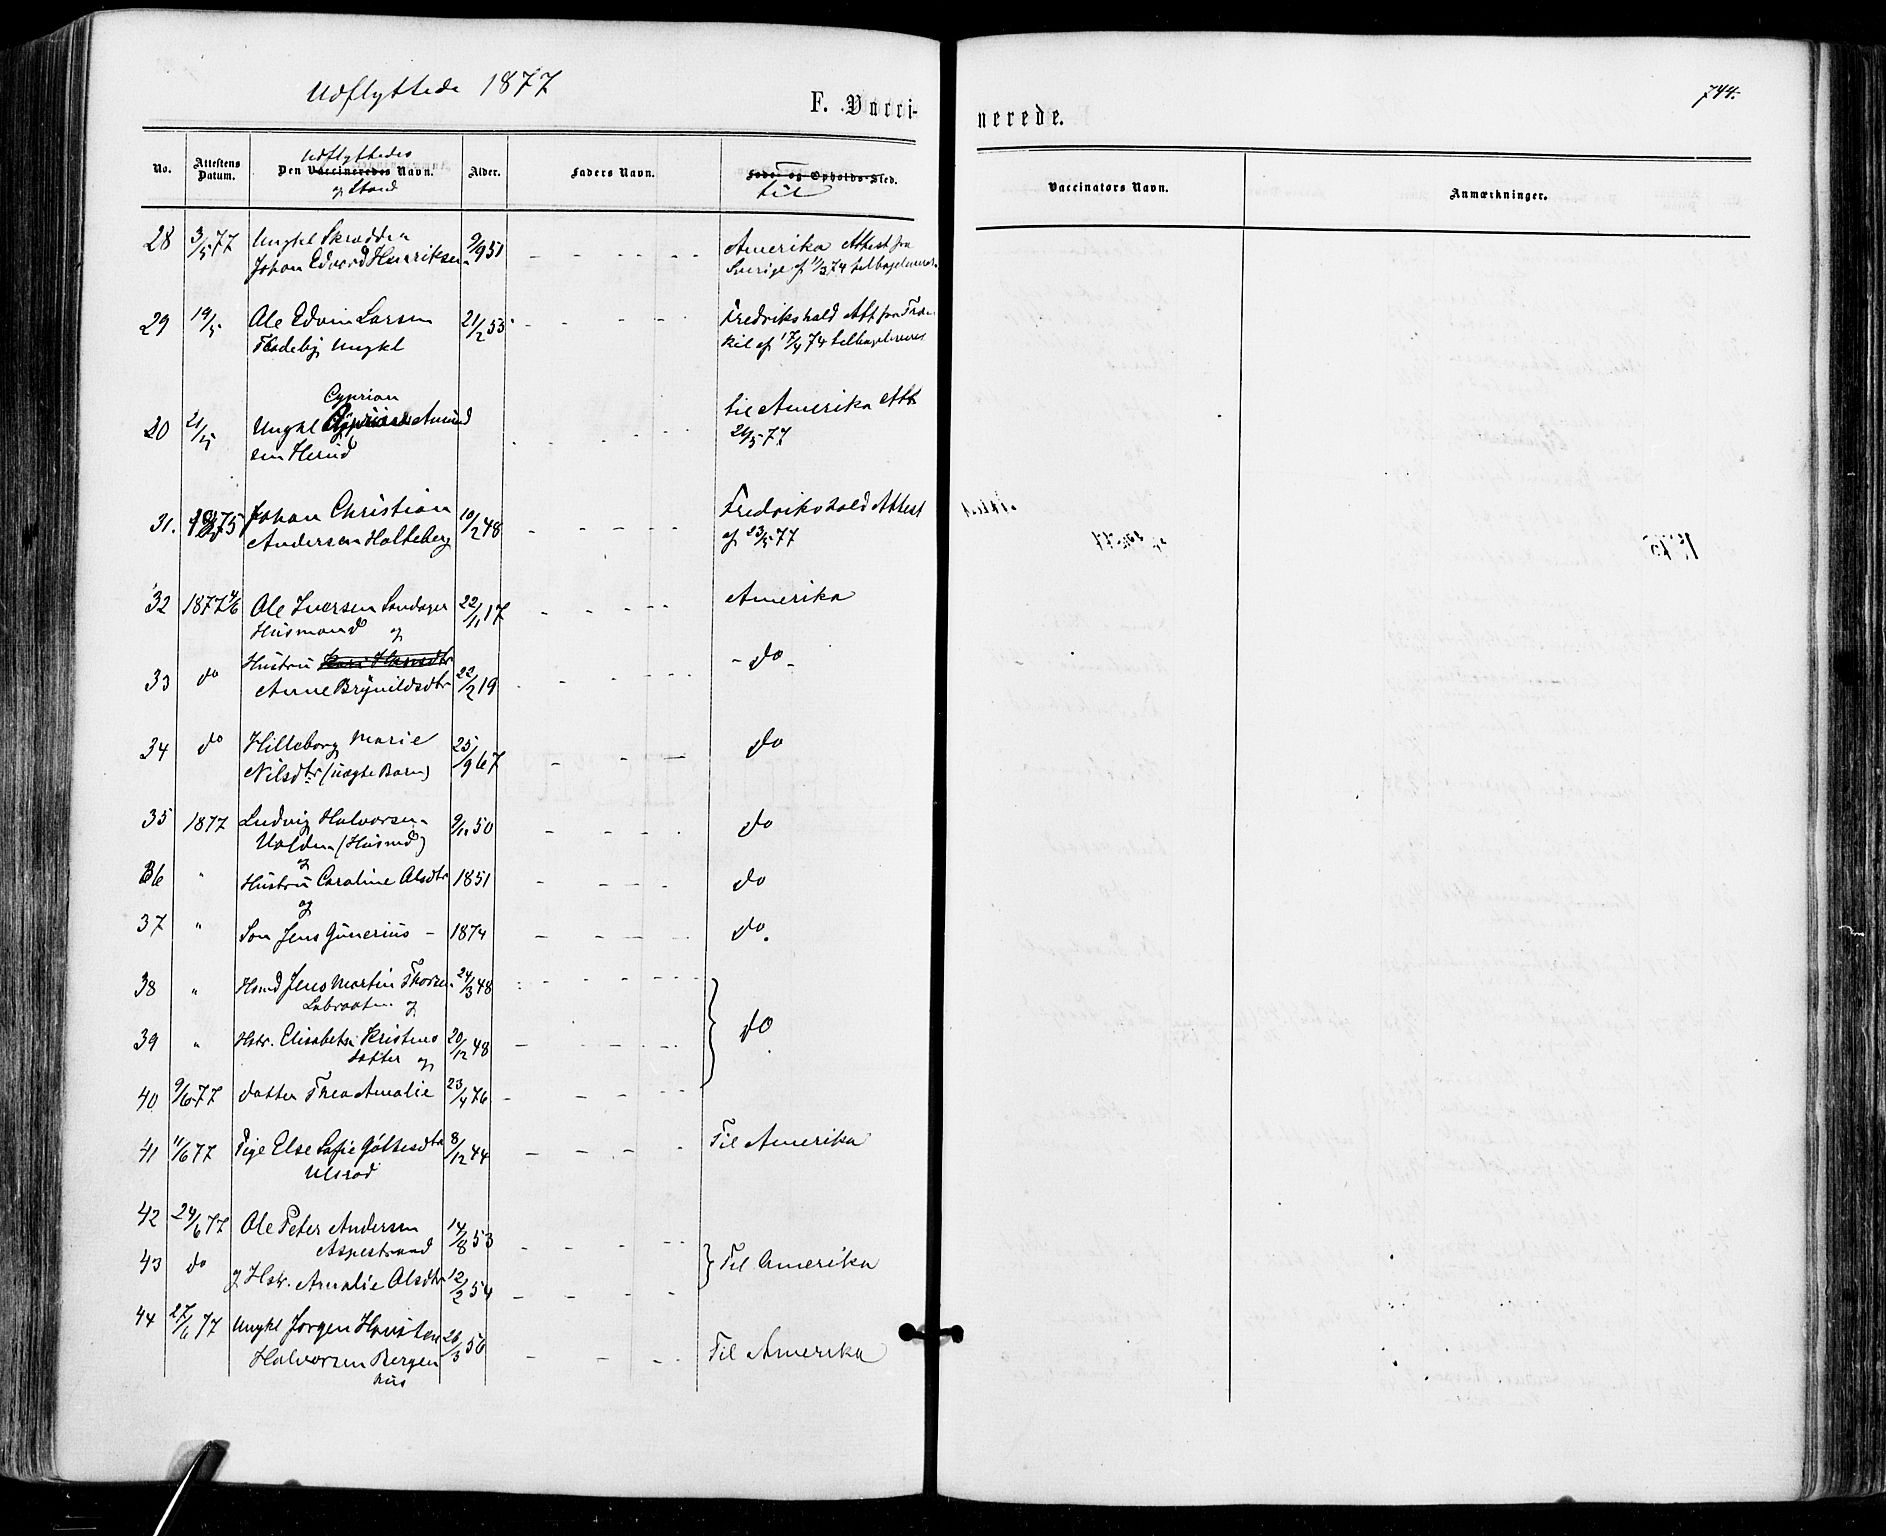 Udflyttede 1877
F. Vacci-
nerede.
744.
No.
Attestens Datum.
Udflyttedes
Den Vaccineredes Navn.
og Stand
Alder.
Faders Navn.
Føde- og Opholds-Sted.
til
Vaccinators Navn.
Anmærkninger.
28 3/5 77 Ungkl Skrædder 9/9 51 Amerika Attest fra
Johan Edvard Henriksen Sverige af 11/3 74 tilbageleveret
29 19/5 Ole Edvin Larsen 21/2 53 Fredrikshald Att fra
Ungkl kil af 17/4 74 tilbageleveres
Cyprian
30 21/5 Ungkl Amund til Amerika Att
sen Herud 21/5 77
31. 1875 Johan Christian 10/2 48 Fredrikshald Attest
Andersen Holteberg af 23/5 77
32 1877 4/6 Ole Iversen Sandager 22/11 17 Amerika
Husmand og
33 do Hustru Kari Hansdtr 22/2 19 - do -
Anne Brynildsdtr
34 do Hilleborg Marie 25/9 67 do
Nilsdtr (uægte Barn)
35 1877 Ludvig Halvorsen 9/11 50 do
Volden (Husmd)
og
36 " Hustru Caroline Olsdtr 1851 do
og
37 " Søn Jens Gunerius - 1874 do.
38 " Hsmd Jens Martin Thorsen 24/3 48
Labraaten og
do
39 " Hstr. Elisabeth Kristens 20/12 48
datter og
40 9/6 77 datter Thea Amalie 23/4 76
41 11/6 77 Pige Else Sofie 8/12 44 Til Amerika
Ulsrød
42 24/6 77 Ole Peter Andersen 14/8 53
Aspestrand
43 do Til Amerika
og Hstr. Amalie Olsdtr 12/2 54
44 27/6 77 Ungkl Jørgen 26/3 56
Halvorsen Bergen Til Amerika
hus